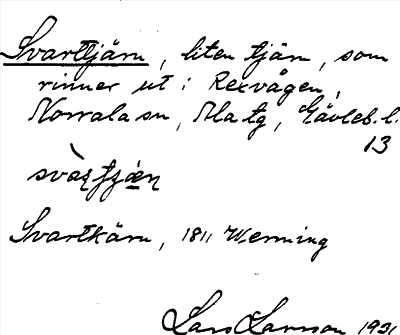 Svarttjärn, liten tjärn, som
rinner ut i Rexvågen,
Norrala sn, Ala tg, Gävleb. l.
13
Svartkärn, 1811 Werming
Lars Larsson 1931